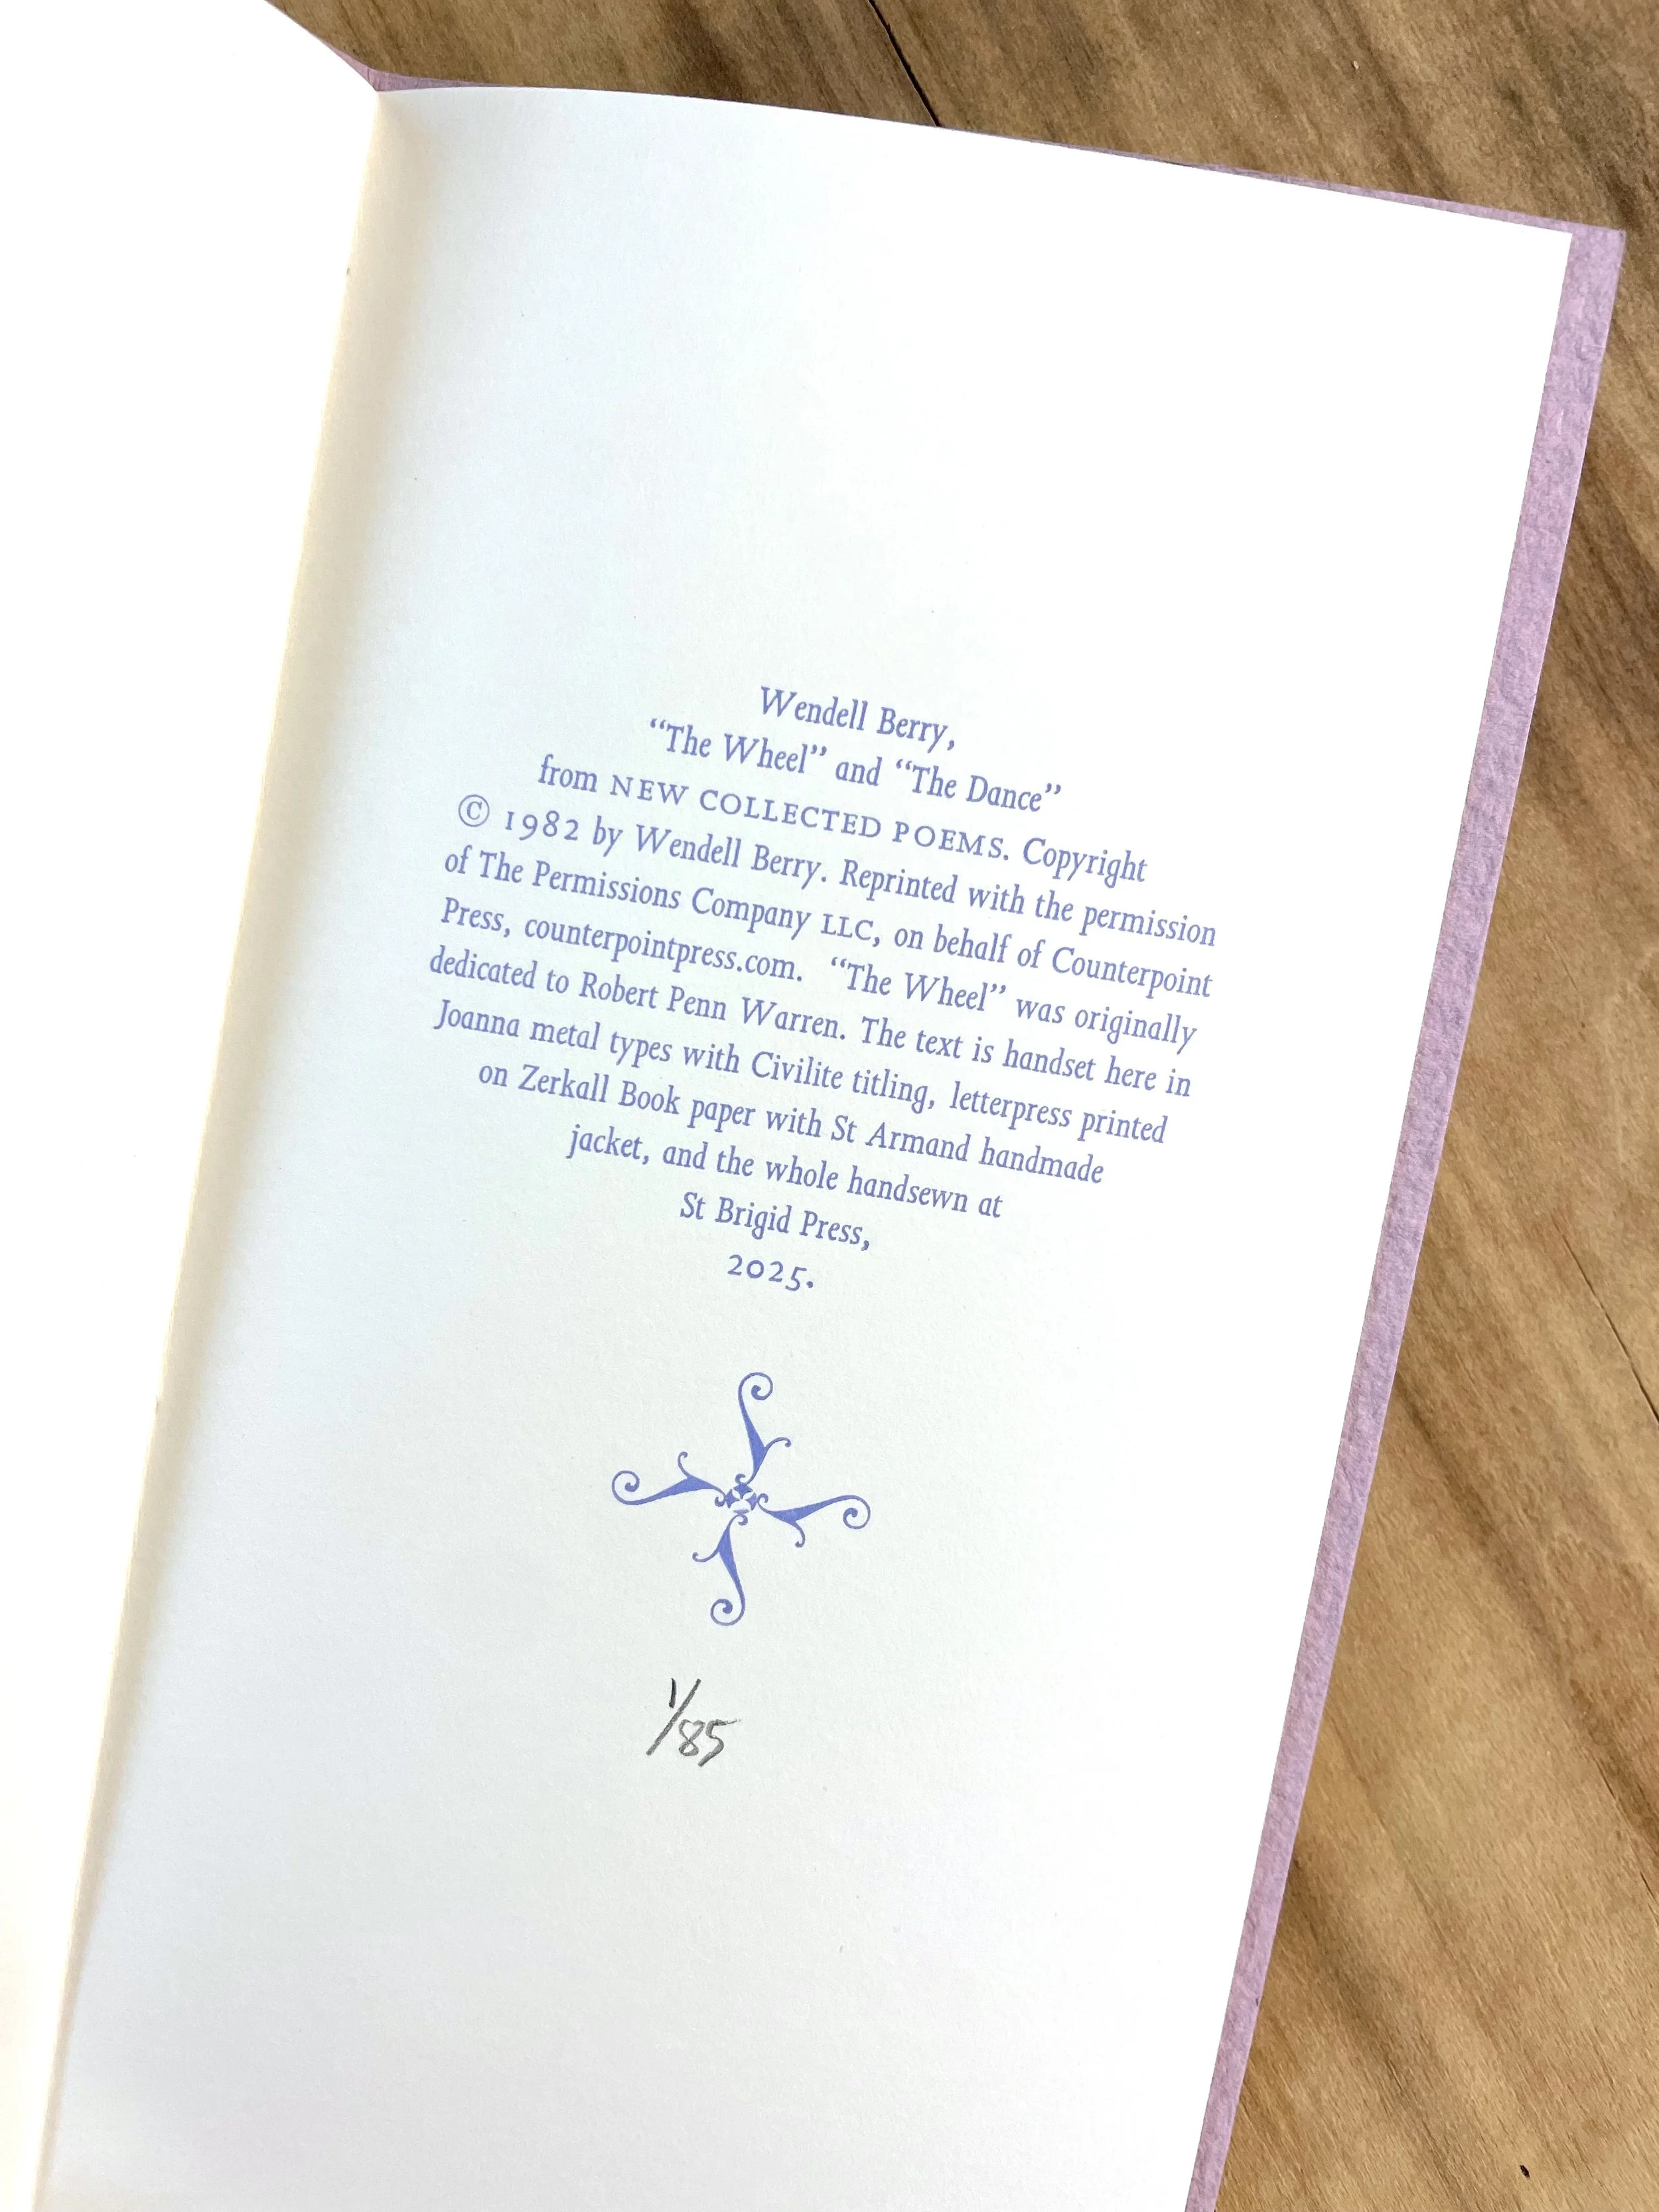 Wendell Berry,
“The Wheel” and “The Dance”
from NEW COLLECTED POEMS. Copyright
© 1982 by Wendell Berry. Reprinted with the permission
of The Permissions Company LLC, on behalf of Counterpoint
Press, counterpointpress.com. “The Wheel” was originally
dedicated to Robert Penn Warren. The text is handset here in
Joanna metal types with Civilite titling, letterpress printed
on Zerkall Book paper with St Armand handmade
jacket, and the whole handsewn at
St Brigid Press,
2025.
1/85